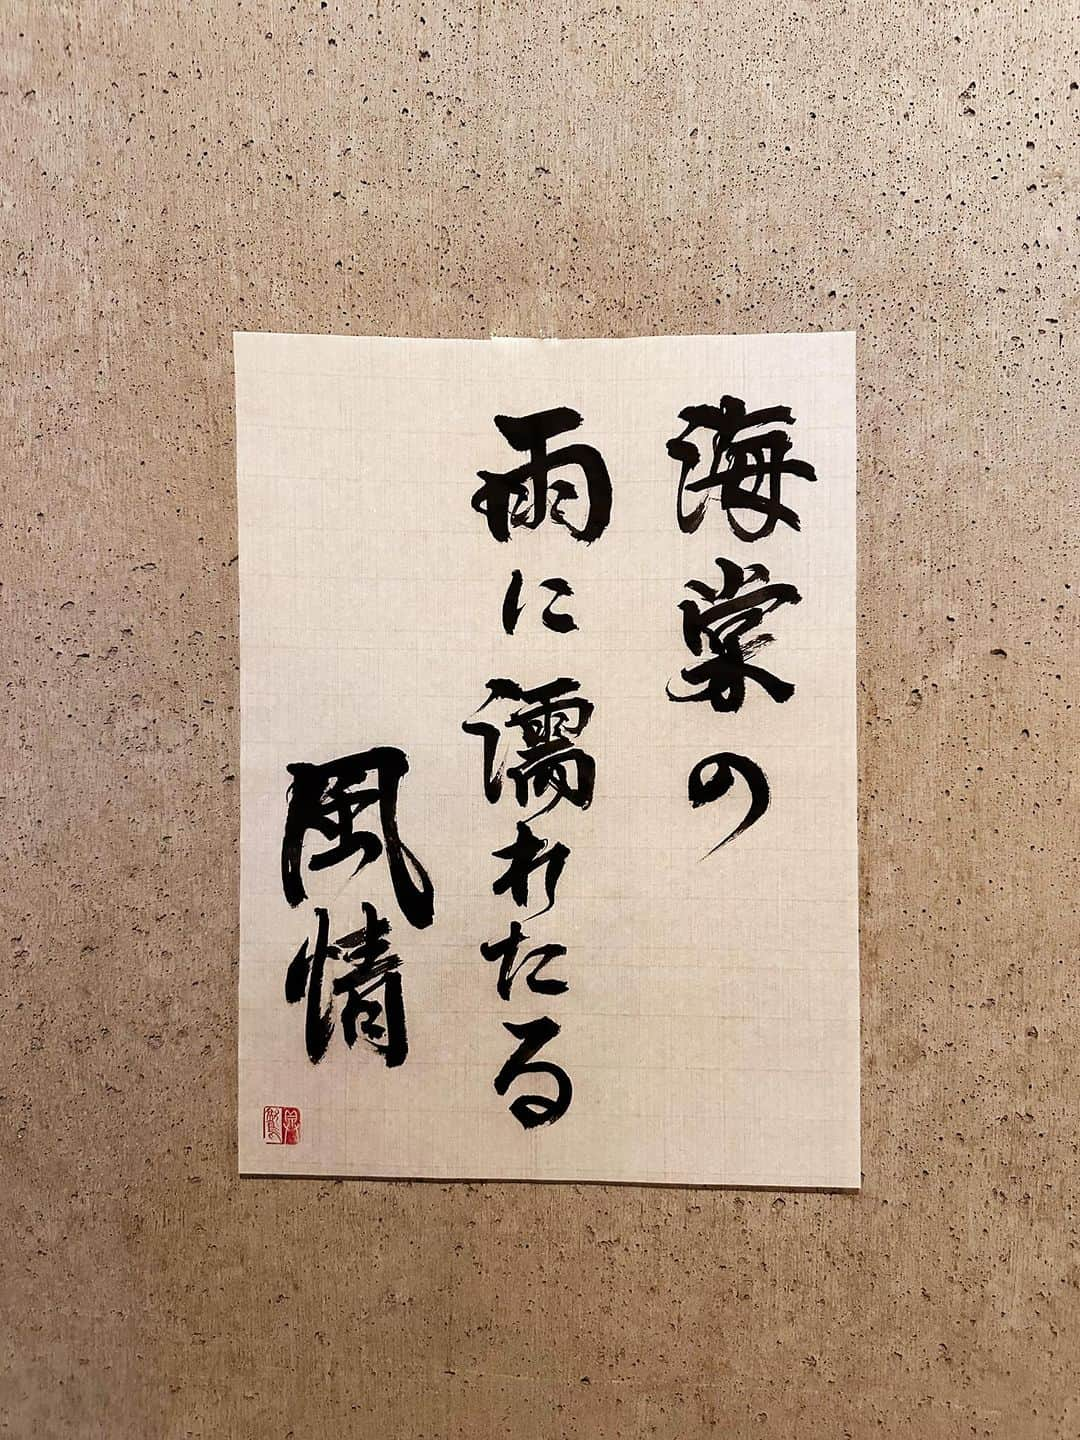 海棠の
雨に濡れたる
風情